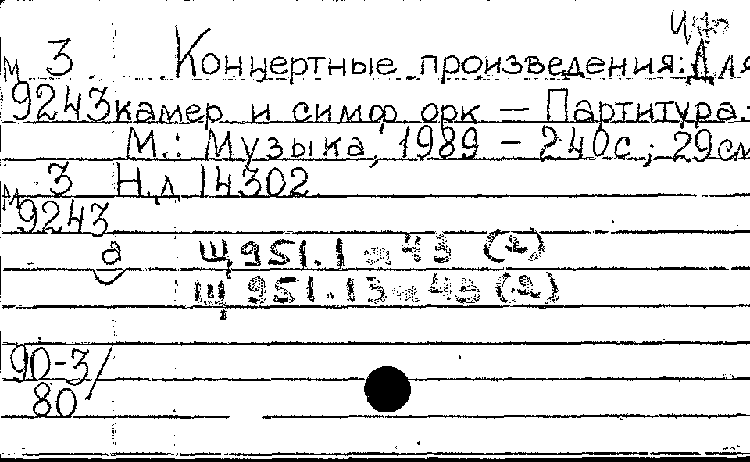 М 3 Концертные произведения: Для
9243 камер и симф орк — Партитура. -
М.: Музыка, 1989 - 240с.; 29см
М 3 Н.д 14302
9243
а Щ 951.1 я 43 (2)
Щ 951.13 я 43 (2)
90-3/
80